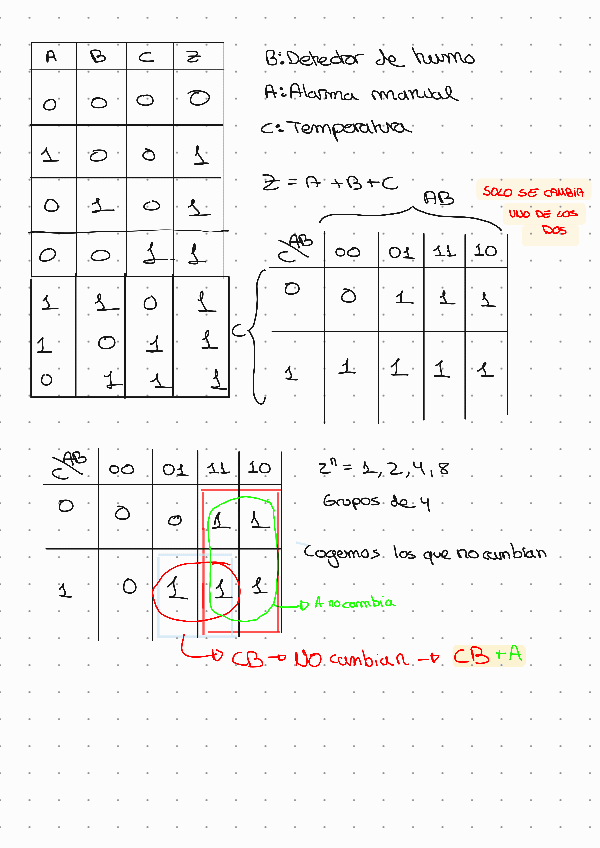 A B C Z
0 0 0 0
1 0 0 1
0 1 0 1
0 0 1 1
1 1 0 1
1 0 1 1
0 1 1 1
B: Detector de humo
A: Alarma manual
C: Temperatura
Z = A + B + C
AB
SOLO SE CAMBIA
UNO DE LOS
DOS
C
C\AB 00 01 11 10
0 0 1 1 1
1 1 1 1 1
C\AB 00 01 11 10
0 0 0 1 1
1 0 1 1 1
2ⁿ = 1, 2, 4, 8
Grupos de 4
Cogemos los que no cambian
A no cambia
CB → NO cambian → CB + A